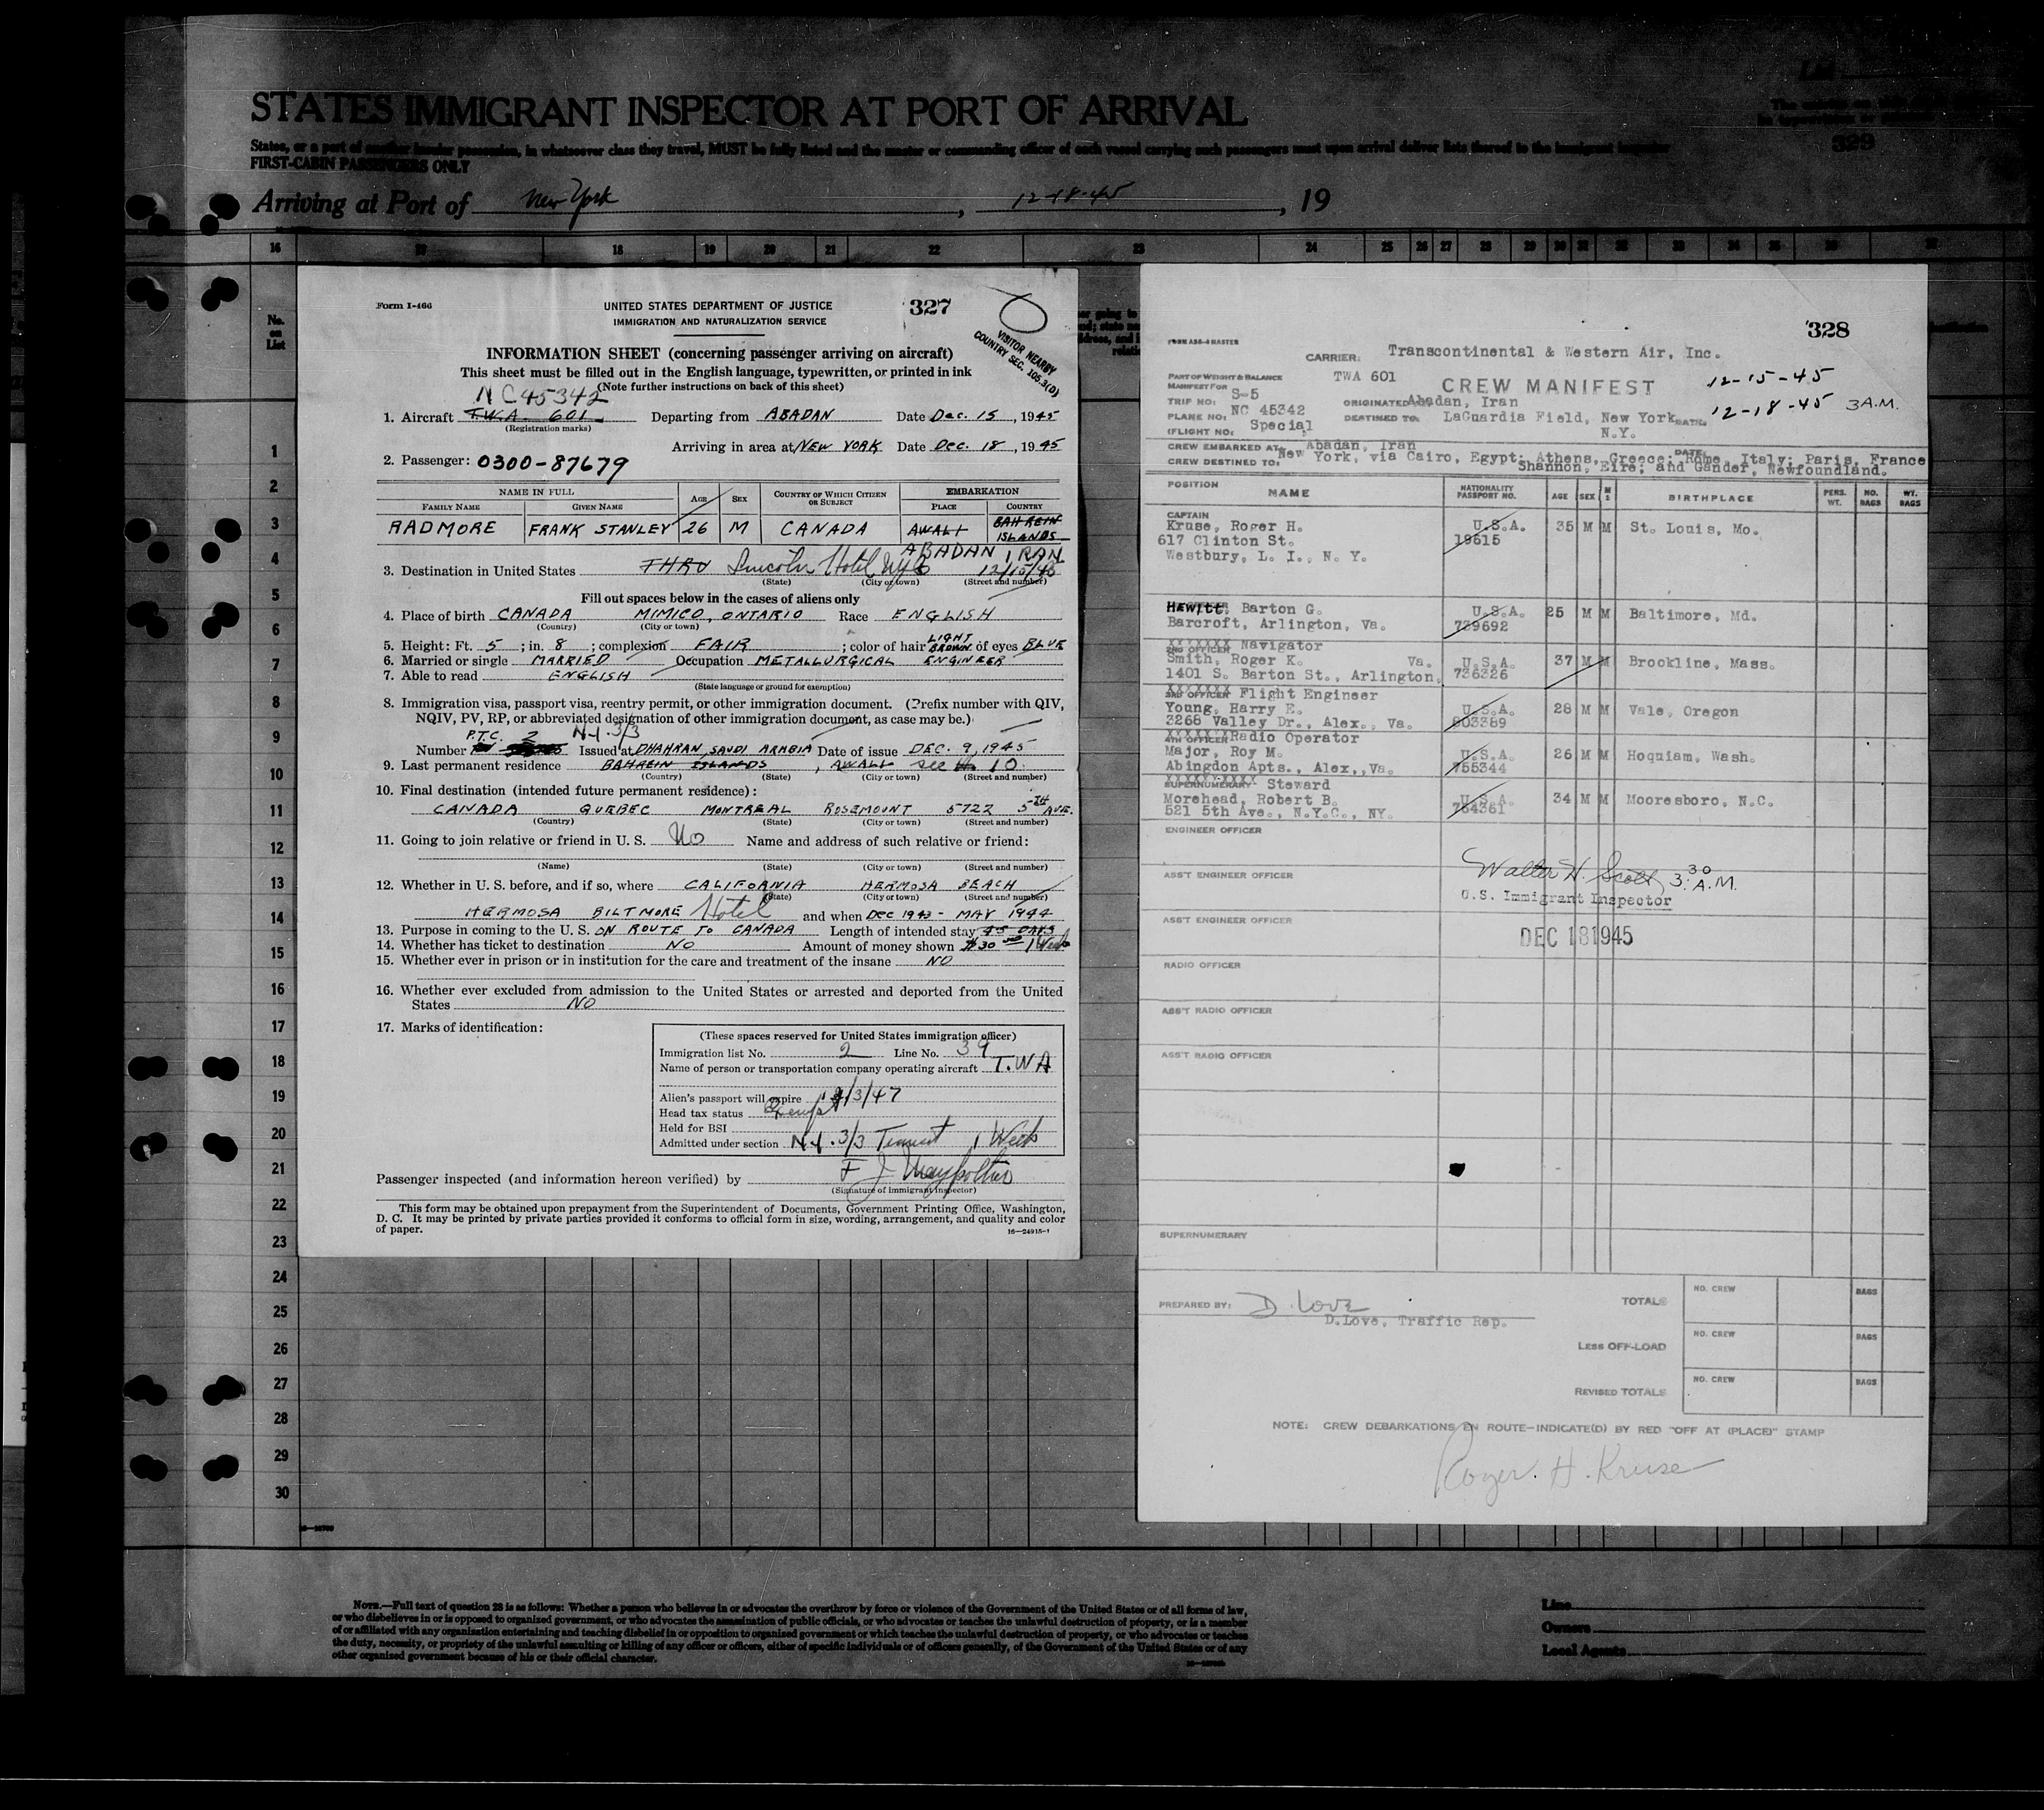 STATES IMMIGRANT INSPECTOR AT PORT OF ARRIVAL
States, or a part of another insular possession, in whatsoever class they travel, MUST be fully listed and the master or commanding officer of each vessel carrying such passengers must upon arrival deliver lists thereof to the immigrant inspector
FIRST-CABIN PASSENGERS ONLY
329
Arriving at Port of New York, 12-18-45, 19
16 17 18 19 20 21 22 23 24 25 26 27 28 29 30
No. on List
1
2
3
4
5
6
7
8
9
10
11
12
13
14
15
16
17
18
19
20
21
22
23
24
25
26
27
28
29
30
Form I-466
UNITED STATES DEPARTMENT OF JUSTICE
IMMIGRATION AND NATURALIZATION SERVICE
327
VISITOR NEARBY
COUNTRY SEC. 105.3(D)
INFORMATION SHEET (concerning passenger arriving on aircraft)
This sheet must be filled out in the English language, typewritten, or printed in ink
(Note further instructions on back of this sheet)
NC45342
1. Aircraft T.W.A. 601 Departing from ABADAN Date Dec. 15, 1945
(Registration marks)
Arriving in area at NEW YORK Date DEC. 18, 1945
2. Passenger: 0300-87679
NAME IN FULL AGE SEX COUNTRY OF WHICH CITIZEN OR SUBJECT EMBARKATION
FAMILY NAME GIVEN NAME PLACE COUNTRY
RADMORE FRANK STANLEY 26 M CANADA AWALI BAHREIN ISLANDS
ABADAN IRAN
3. Destination in United States THRU Lincoln Hotel NYC 12/15/45
(State) (City or town) (Street and number)
Fill out spaces below in the cases of aliens only
4. Place of birth CANADA MIMICO, ONTARIO Race ENGLISH
(Country) (City or town)
5. Height: Ft. 5; in. 8; complexion FAIR; color of hair LIGHT BROWN of eyes BLUE
6. Married or single MARRIED Occupation METALLURGICAL ENGINEER
7. Able to read ENGLISH
(State language or ground for exemption)
8. Immigration visa, passport visa, reentry permit, or other immigration document. (Prefix number with QIV,
NQIV, PV, RP, or abbreviated designation of other immigration document, as case may be.)
P.T.C. 2 N-1. 3/3
Number Issued at DHAHRAN, SAUDI ARABIA Date of issue DEC. 9, 1945
9. Last permanent residence BAHREIN ISLANDS, AWALI see 10.
(Country) (State) (City or town) (Street and number)
10. Final destination (intended future permanent residence):
CANADA QUEBEC MONTREAL ROSEMOUNT 5722 5TH AVE.
(Country) (State) (City or town) (Street and number)
11. Going to join relative or friend in U. S. No Name and address of such relative or friend:
(Name) (State) (City or town) (Street and number)
12. Whether in U. S. before, and if so, where CALIFORNIA HERMOSA BEACH
(State) (City or town) (Street and number)
HERMOSA BILTMORE Hotel and when DEC 1943 - MAY 1944
13. Purpose in coming to the U. S. ON ROUTE TO CANADA Length of intended stay 45 DAYS
14. Whether has ticket to destination NO Amount of money shown $30 00 1 Week
15. Whether ever in prison or in institution for the care and treatment of the insane NO
16. Whether ever excluded from admission to the United States or arrested and deported from the United
States NO
17. Marks of identification:
(These spaces reserved for United States immigration officer)
Immigration list No. 2 Line No. 39
Name of person or transportation company operating aircraft T.W.A
Alien's passport will expire /3/47
Head tax status Exempt
Held for BSI
Admitted under section N-1. 3/3 Transit 1 Week
Passenger inspected (and information hereon verified) by F J
(Signature of immigrant inspector)
This form may be obtained upon prepayment from the Superintendent of Documents, Government Printing Office, Washington,
D. C. It may be printed by private parties provided it conforms to official form in size, wording, arrangement, and quality and color
of paper.
16—24915-1
328
FORM A88-4 MASTER
CARRIER: Transcontinental & Western Air, Inc.
PART OF WEIGHT & BALANCE
MANIFEST FOR TWA 601
CREW MANIFEST
12-15-45
TRIP NO: S-5 ORIGINATED Abadan, Iran
12-18-45 3 A.M.
PLANE NO: NC 45342 DESTINED TO. LaGuardia Field, New York DATE:
N.Y.
(FLIGHT NO: Special
CREW EMBARKED AT: Abadan, Iran DATE:
CREW DESTINED TO: New York, via Cairo, Egypt; Athens, Greece; Rome, Italy; Paris, France
Shannon, Eire; and Gander, Newfoundland.
POSITION NAME NATIONALITY PASSPORT NO. AGE SEX M S BIRTHPLACE PERS. WT. NO. BAGS WT. BAGS
CAPTAIN
Kruse, Roger H. U.S.A. 35 M M St. Louis, Mo.
617 Clinton St. 19615
Westbury, L. I., N. Y.
Hewitt, Barton G. U.S.A. 25 M M Baltimore, Md.
Barcroft, Arlington, Va. 739692
XXXXXXX Navigator
2ND OFFICER
Smith, Roger K. Va. U.S.A. 37 M M Brookline, Mass.
1401 S. Barton St., Arlington, 736326
XXXXXXX Flight Engineer
3RD OFFICER
Young, Harry E. U.S.A. 28 M M Vale, Oregon
3268 Valley Dr., Alex., Va. 803389
XXXXXXX Radio Operator
4TH OFFICER
Major, Roy M. U.S.A. 26 M M Hoquiam, Wash.
Abingdon Apts., Alex., Va. 755344
XXXXXX XXXX Steward
SUPERNUMERARY
Morehead, Robert B. U.S.A. 34 M M Mooresboro, N.C.
521 5th Ave., N.Y.C., NY. 764361
ENGINEER OFFICER
Walter H. Scott 3:30 A.M.
ASS'T ENGINEER OFFICER
U.S. Immigrant Inspector
ASS'T ENGINEER OFFICER
DEC 18 1945
RADIO OFFICER
ASS'T RADIO OFFICER
ASS'T RADIO OFFICER
SUPERNUMERARY
PREPARED BY: D. Love
D.Love, Traffic Rep.
TOTALS NO. CREW BAGS
LESS OFF-LOAD NO. CREW BAGS
REVISED TOTALS NO. CREW BAGS
NOTE: CREW DEBARKATIONS EN ROUTE—INDICATE(D) BY RED "OFF AT (PLACE)" STAMP
Roger. H. Kruse
NOTE.—Full text of question 28 is as follows: Whether a person who believes in or advocates the overthrow by force or violence of the Government of the United States or of all forms of law,
or who disbelieves in or is opposed to organized government, or who advocates the assassination of public officials, or who advocates or teaches the unlawful destruction of property, or is a member
of or affiliated with any organization entertaining and teaching disbelief in or opposition to organized government or which teaches the unlawful destruction of property, or who advocates or teaches
the duty, necessity, or propriety of the unlawful assaulting or killing of any officer or officers, either of specific individuals or of officers generally, of the Government of the United States or of any
other organized government because of his or their official character.
Line
Owners
Local Agents